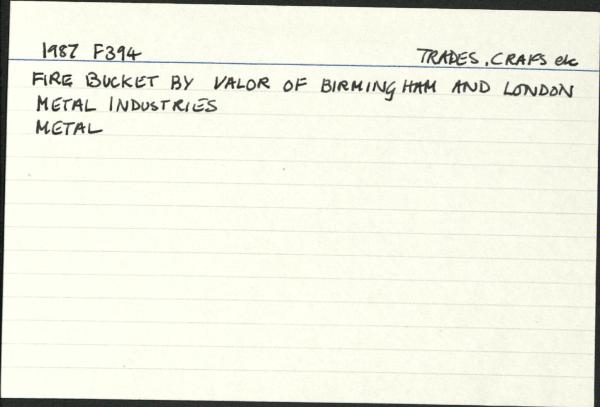 1987 F394 TRADES, CRAFS etc
FIRE BUCKET BY VALOR OF BIRMINGHAM AND LONDON
METAL INDUSTRIES
METAL